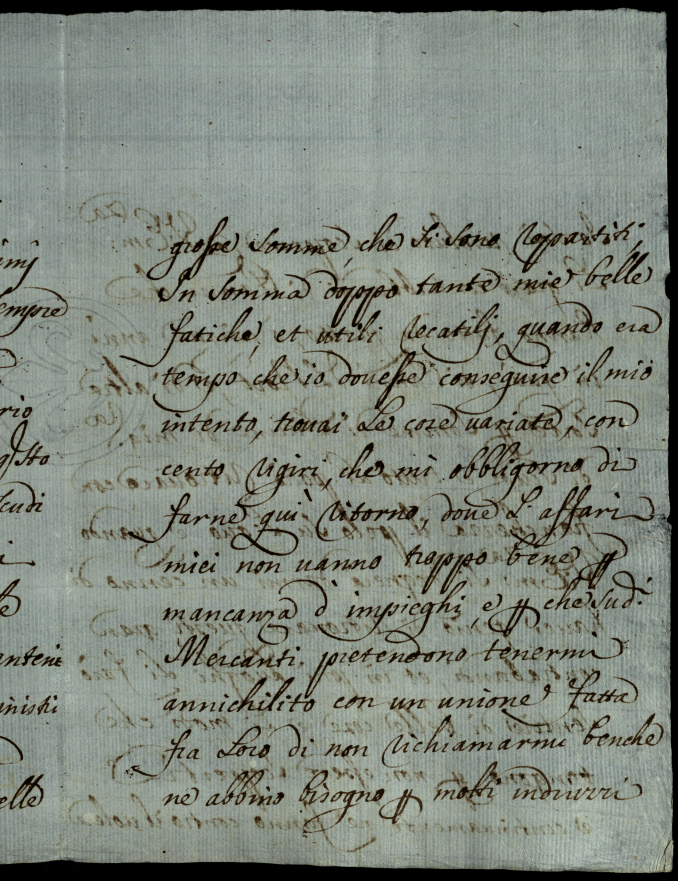 grosse somme, che si sono repartiti,
In somma doppo tante mie belle
fatiche, et utili recatilj, quando era
tempo che io dovesse conseguire il mio
intento, trovai Le cose variate, con
cento rigiri, che mi obbligorno di
farne quì ritorno, dove L'affari
miei non vanno troppo bene ꝑ
mancanza d'impieghi, e ꝑ che sud.i
Mercanti pretendono tenermi
annichilito con un unione fatta
fra Loro di non richiamarmi benche
ne abbino bisogno ꝑ molti indirizzi
imj
empre
rio
sto
cudi
i
te
antene
inistri
elle